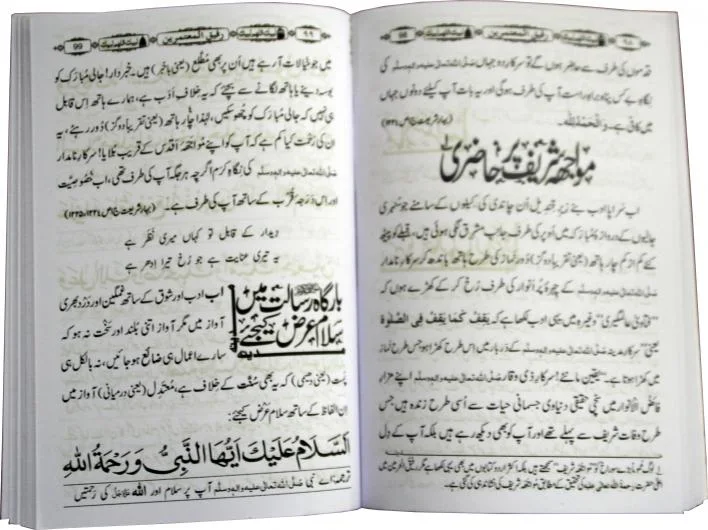 رفیق المعتمرین
۹۸
قدموں کی طرف سے حاضر ہوں گے تو سرکارِ دو جہاں صلی اللہ تعالیٰ علیہ والہ وسلم کی
نگاہِ بے کس پناہ براہِ راست آپ کی طرف ہوگی اور یہ بات آپ کیلئے دونوں جہاں
میں کافی ہے۔ وَالْحَمْدُ لِلّٰہ۔
مواجہہ شریف پر حاضری
اب سراپا ادب بنے زیرِ قندیل اُن چاندی کی کیلوں کے سامنے جو سنہری
جالیوں کے دروازۂ مبارکہ میں اُوپر کی طرف جانبِ مشرق لگی ہوئی ہیں، قبلے کو پیٹھ
کئے کم از کم چار ہاتھ (یعنی تقریباً دو گز) دُور نماز کی طرح ہاتھ باندھ کر سرکارِ نامدار
صلی اللہ تعالیٰ علیہ والہ وسلم کے چہرۂ پُر انوار کی طرف رُخ کر کے کھڑے ہوں کہ
”فتاویٰ عالمگیری“ وغیرہ میں یہی ادب لکھا ہے کہ یَقِفُ کَمَا یَقِفُ فِی الصَّلٰوۃِ
یعنی ”سرکارِ مدینہ صلی اللہ تعالیٰ علیہ والہ وسلم کے دربار میں اِس طرح کھڑا ہو جس طرح نماز
میں کھڑا ہوتا ہے۔“ یقین مانئے! سرکارِ ذی وقار صلی اللہ تعالیٰ علیہ والہ وسلم اپنے مزارِ
فائضُ الانوار میں سچی حقیقی دنیاوی جسمانی حیات سے اُسی طرح زندہ ہیں جس
طرح وفات شریف سے پہلے تھے اور آپ کو بھی دیکھ رہے ہیں بلکہ آپ کے دِل
رفیق المعتمرین
۹۹
99
میں جو خیالات آ رہے ہیں اُن پر بھی مُطَّلِع (یعنی باخبر) ہیں۔ خبردار! جالی مُبارَک کو
بوسہ دینے یا ہاتھ لگانے سے بچئے کہ یہ خلافِ اَدَب ہے، ہمارے ہاتھ اِس قابل
ہی نہیں کہ جالی مُبارَک کو چُھو سکیں، لہٰذا چار ہاتھ (یعنی تقریباً دو گز) دُور رہئے، یہ
ان کی رَحْمت کیا کم ہے کہ آپ کو اپنے مواجہہ اقدس کے قریب بُلایا! سرکارِ نامدار
صلی اللہ تعالیٰ علیہ والہ وسلم کی نِگاہِ کرم اگرچہ ہر جگہ آپ کی طرف تھی، اب خُصُوصیَّت
اور اس دَرَجہ قُرْب کے ساتھ آپ کی طرف ہے۔
دیدار کے قابل تو کہاں میری نظر ہے
یہ تیری عنایت ہے جو رُخ تیرا اِدھر ہے
بارگاہِ رسالت میں
سلام عرض کیجئے
اب ادب اور شوق کے ساتھ غمگین اور دَرْد بھری
آواز میں مگر آواز اتنی بلند اور سَخْت نہ ہو کہ
سارے اعمال ہی ضائع ہو جائیں، نہ بالکل ہی
پَسْت (یعنی دھیمی) کہ یہ بھی سُنّت کے خلاف ہے، مُعتَدِل (یعنی درمیانی) آواز میں
ان الفاظ کے ساتھ سلام عَرْض کیجئے:
اَلسَّلَامُ عَلَیْکَ اَیُّھَا النَّبِیُّ وَرَحْمَۃُ اللّٰہِ
ترجمہ: اے نبی صلی اللہ تعالیٰ علیہ والہ وسلم آپ پر سلام اور اللہ کی رحمتیں